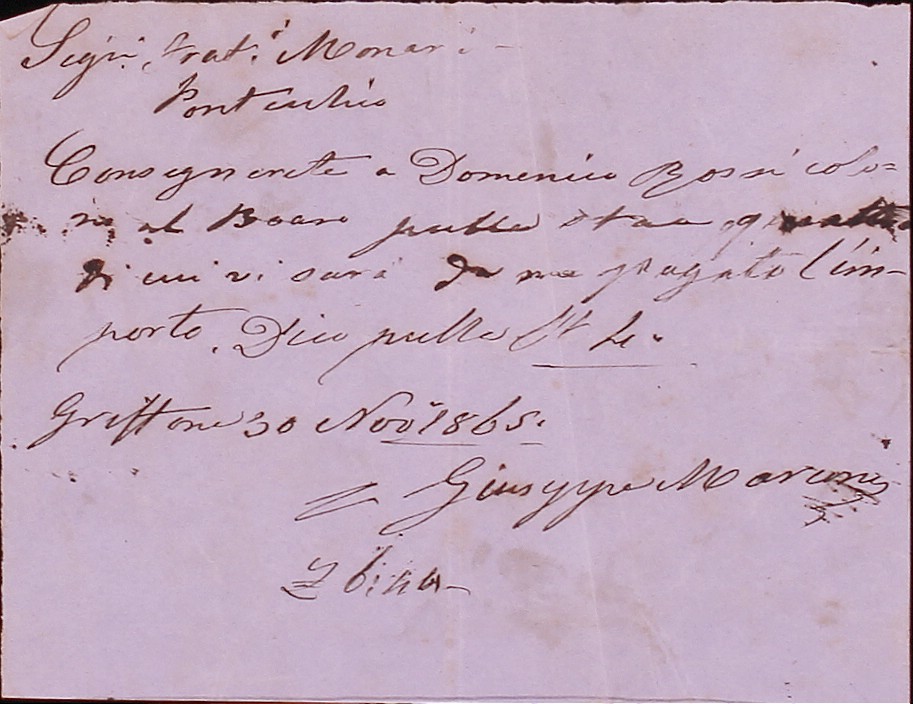 Sigri. Frat.i Monari -
Pontecchio
Consegnerete a Domenico Rossi colo=
no al pulle quattro
di cui vi sarà da me pagato l'im-
porto. Dico pulle 4.
Griffone 30 Nov.e 1865.
Giuseppe